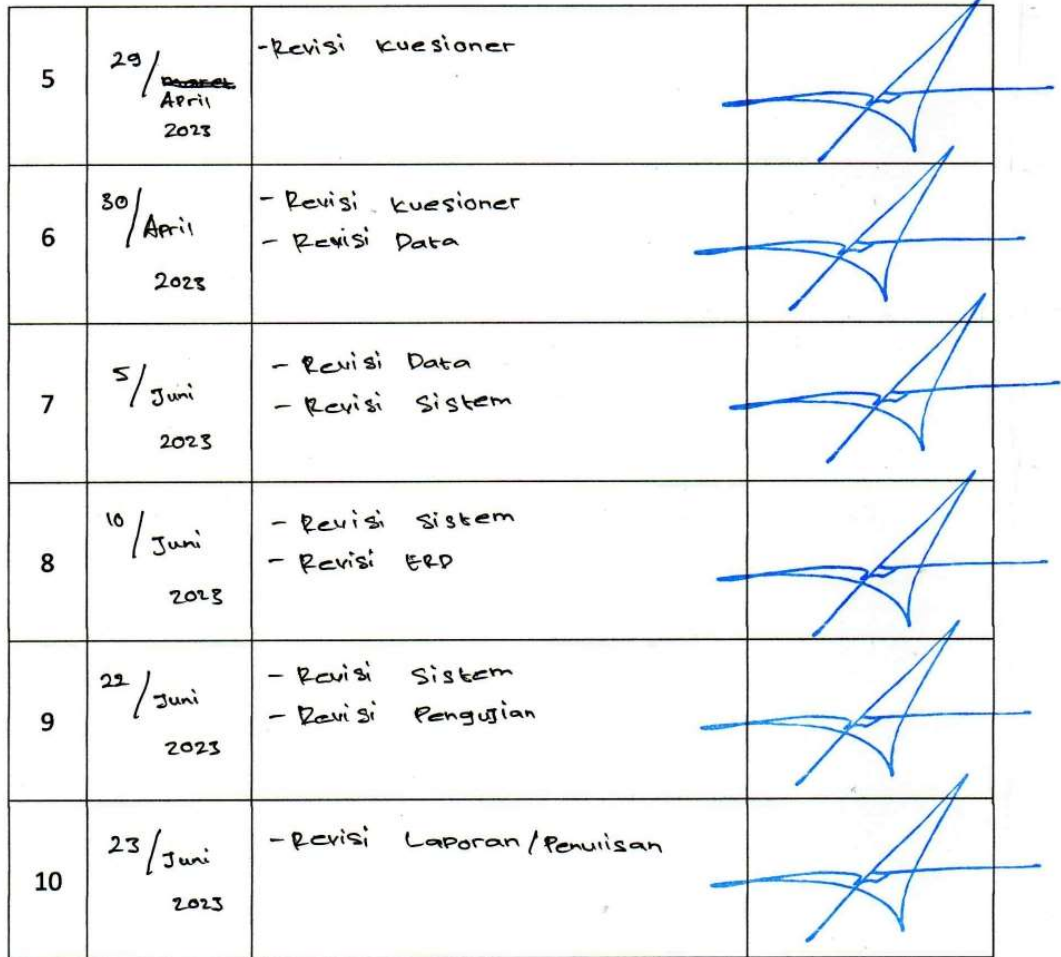 5
29/
maret
April
2023
-Revisi kuesioner
6
30/April
2023
- Revisi kuesioner
- Revisi Data
7
5/Juni
2023
- Revisi Data
- Revisi Sistem
8
10/Juni
2023
- Revisi Sistem
- Revisi ERD
9
22/Juni
2023
- Revisi Sistem
- Revisi Pengujian
10
23/Juni
2023
-Revisi Laporan/Penulisan